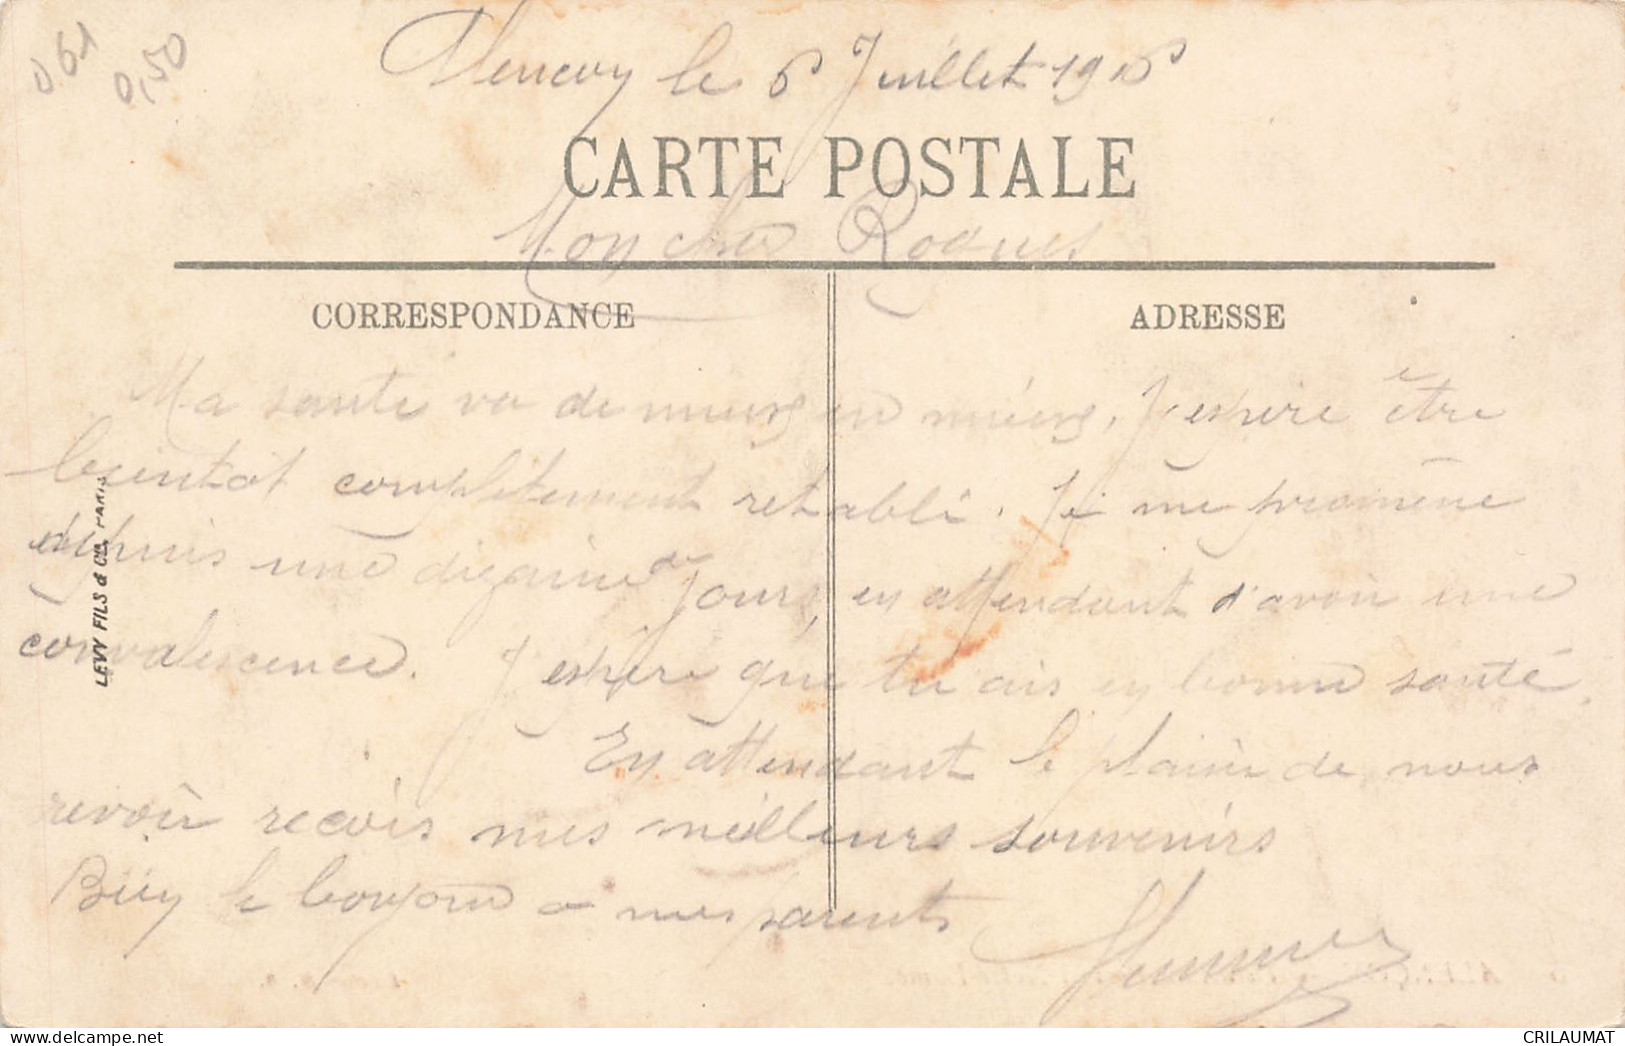 0.61
0,50
le 6 Juillet 1916
CARTE POSTALE
Mon cher Roques
CORRESPONDANCE
ADRESSE
Ma sante va de mieux en mieux, J'espère être
bientot completement retabli. Je me promène
depuis une dizaine de jours, en attendant d'avoir une
convalescence. J'espère que tu ais en bonne santé.
En attendant le plaisir de nous
revoir reçois mes meilleurs souvenirs
Bien le bonjour a mes parents
LEVY FILS & Co, PARIS
CRILAUMAT